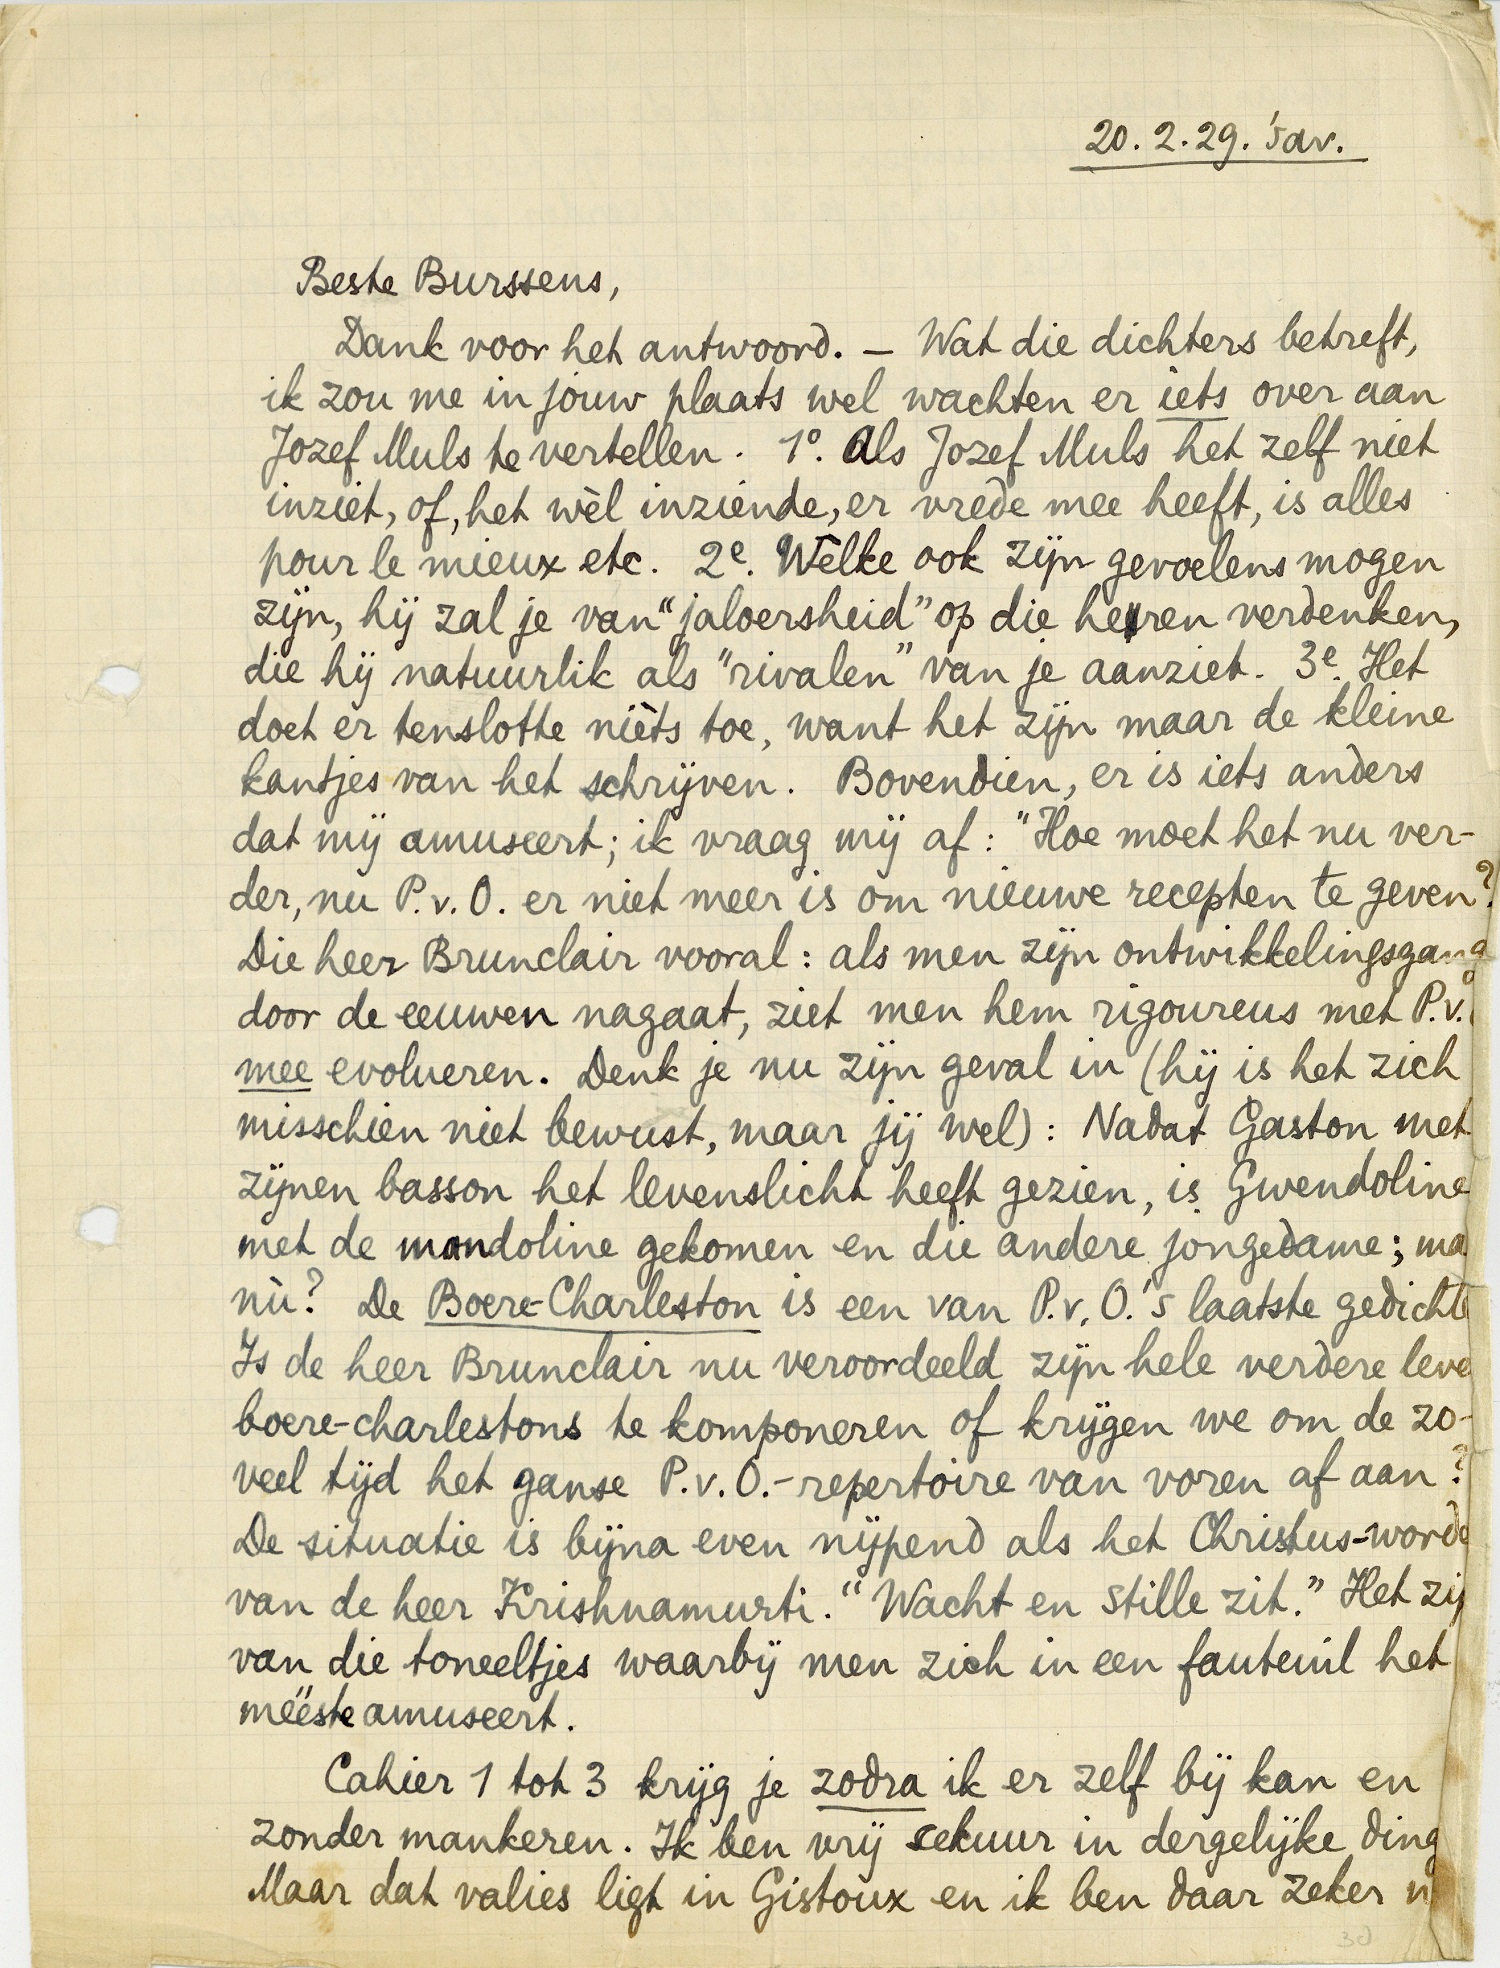 20.2.29. 's av.
Beste Burssens,
Dank voor het antwoord. — Wat die dichters betreft,
ik zou me in jouw plaats wel wachten er iets over aan
Jozef Muls te vertellen. 1°. Als Jozef Muls het zelf niet
inziet, of, het wèl inziende, er vrede mee heeft, is alles
pour le mieux etc. 2e. Wèlke ook zijn gevoelens mogen
zijn, hij zal je van "jaloersheid" op die heren verdenken,
die hij natuurlik als "rivalen" van je aanziet. 3e. Het
doet er tenslotte nièts toe, want het zijn maar de kleine
kantjes van het schrijven. Bovendien, er is iets anders
dat mij amuseert; ik vraag mij af: "Hoe moet het nu ver-
der, nu P.v.O. er niet meer is om nieuwe recepten te geven?
Die heer Brunclair vooral: als men zijn ontwikkelingsgang
door de eeuwen nagaat, ziet men hem rigoureus met P.v.O
mee evolueren. Denk je nu zijn geval in (hij is het zich
misschien niet bewust, maar jij wel): Nadat Gaston met
zijnen basson het levenslicht heeft gezien, is Gwendoline
met de mandoline gekomen en die andere jongedame; ma
nù? De Boere-Charleston is een van P.v.O.'s laatste gedichte
Is de heer Brunclair nu veroordeeld zijn hele verdere leve
boere-charlestons te komponeren of krijgen we om de zo-
veel tijd het ganse P.v.O.-repertoire van voren af aan?
De situatie is bijna even nijpend als het Christus-worde
van de heer Krishnamurti. "Wacht en stille zit." Het zij
van die toneeltjes waarbij men zich in een fauteuil het
mééste amuseert.
Cahier 1 tot 3 krijg je zodra ik er zelf bij kan en
zonder mankeren. Ik ben vrij sekuur in dergelijke ding
Maar dat valies ligt in Gistoux en ik ben daar zeker n
30